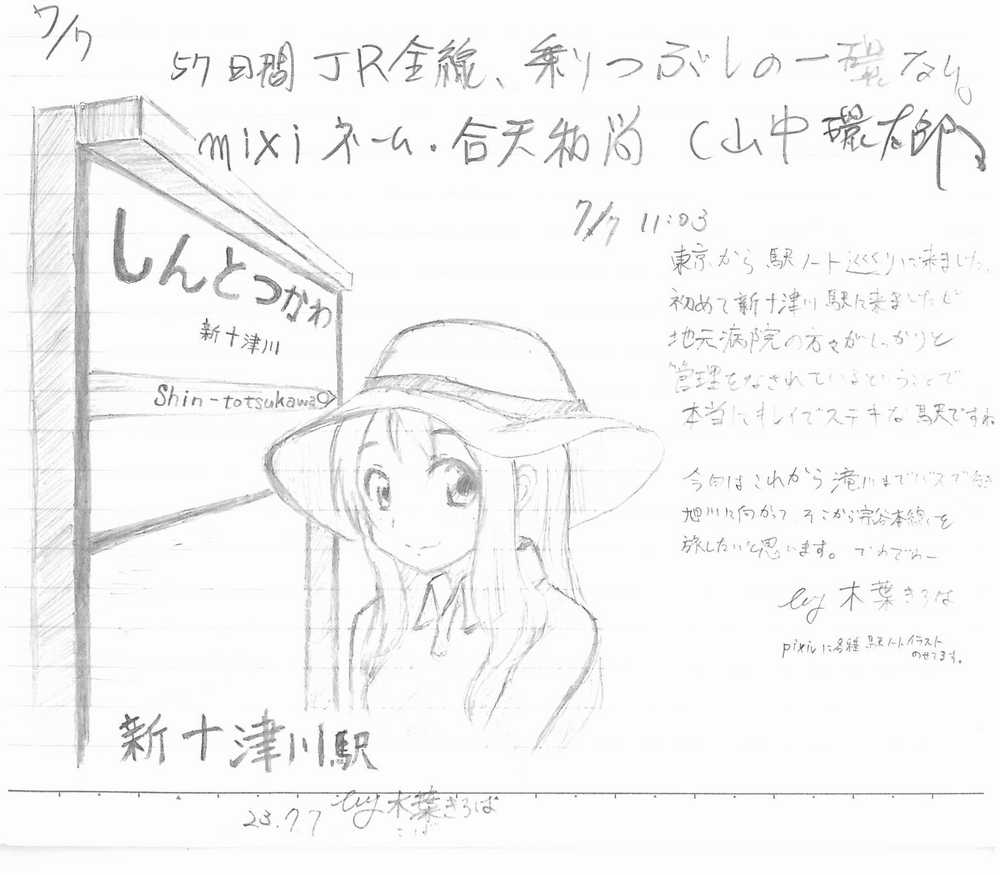 7/7
57日間JR全線、乗りつぶしの一環なり。
mixiネーム・合天和尚(山中環太郎)
しんとつかわ
新十津川
Shin-totsukawa
7/7 11:03
東京から駅ノート巡くりに来ました。
初めて新十津川駅に来ましたが
地元病院の方々がしっかりと
管理をなされているということで
本当にキレイでステキな駅ですね
今日はこれから滝川までバスで
旭川に向かって そこから宗谷本線を
旅したいと思います。 でわでわー
by 木葉きろは
pixivに各種 駅ノートイラスト
のせてます。
新十津川駅
23.7.7 by 木葉きろは
こば